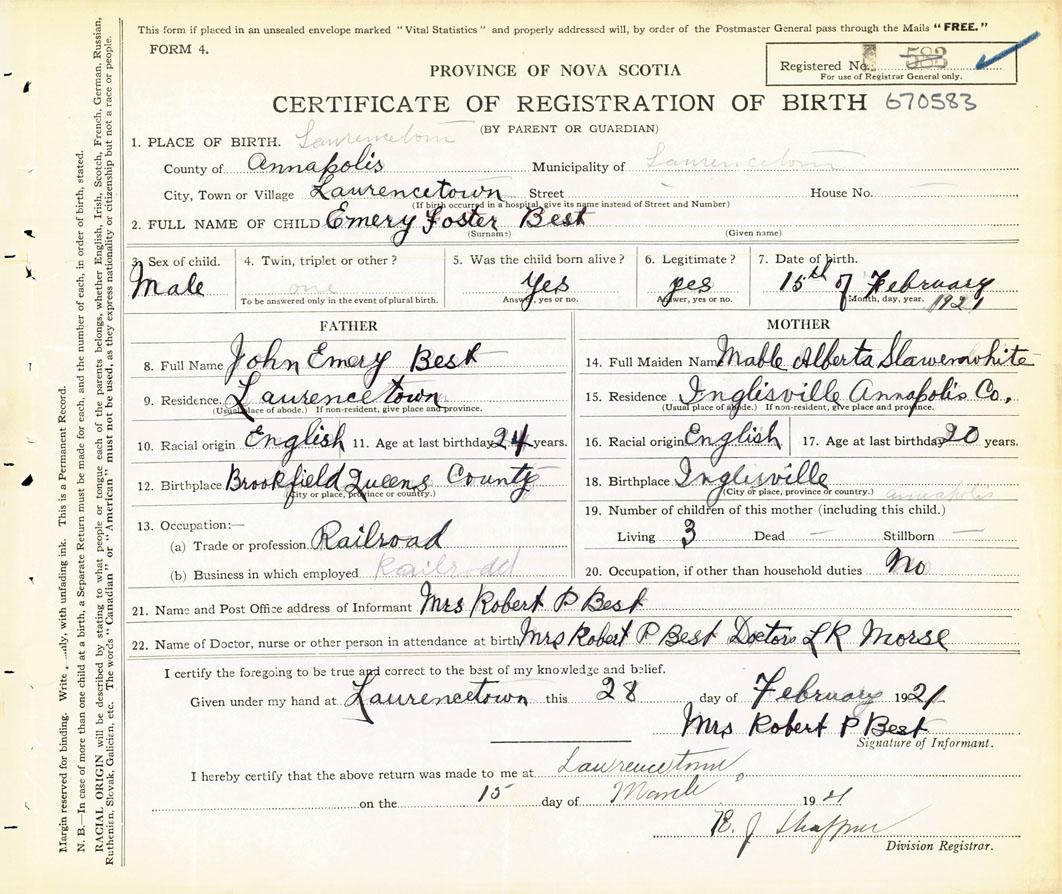 This form if placed in an unsealed envelope marked "Vital Statistics" and properly addressed will, by order of the Postmaster General pass through the Mails "FREE."
FORM 4.
Registered No. 583
For use of Registrar General only.
PROVINCE OF NOVA SCOTIA
CERTIFICATE OF REGISTRATION OF BIRTH 670583
(BY PARENT OR GUARDIAN)
1. PLACE OF BIRTH. Laurencetown
County of Annapolis Municipality of Laurencetown
City, Town or Village Laurencetown Street House No.
(If birth occurred in a hospital, give its name instead of Street and Number)
2. FULL NAME OF CHILD Emery Foster Best
(Surname) (Given name)
3. Sex of child. 4. Twin, triplet or other? 5. Was the child born alive? 6. Legitimate? 7. Date of birth.
Male one Yes yes 15th of February
To be answered only in the event of plural birth. Answer, yes or no. Answer, yes or no. Month, day, year. 1921
FATHER
8. Full Name John Emery Best
9. Residence. Laurencetown
(Usual place of abode.) If non-resident, give place and province.
10. Racial origin English 11. Age at last birthday 24 years.
12. Birthplace Brookfield Queens County
(City or place, province or country.)
13. Occupation:—
(a) Trade or profession Railroad
(b) Business in which employed Railroad
MOTHER
14. Full Maiden Name Mable Alberta Slawenwhite
15. Residence Inglisville Annapolis Co.
(Usual place of abode.) If non-resident, give place and province.
16. Racial origin English 17. Age at last birthday 20 years.
18. Birthplace Inglisville
(City or place, province or country.) Annapolis
19. Number of children of this mother (including this child.)
Living 3 Dead — Stillborn —
20. Occupation, if other than household duties No
21. Name and Post Office address of Informant Mrs Robert P Best
22. Name of Doctor, nurse or other person in attendance at birth Mrs Robert P Best Doctors LR Morse
I certify the foregoing to be true and correct to the best of my knowledge and belief.
Given under my hand at Laurencetown this 28 day of February 1921
Mrs Robert P Best
Signature of Informant.
I hereby certify that the above return was made to me at Laurencetown,
on the 15 day of March 1921
J Shaffner
Division Registrar.
Margin reserved for binding. Write only, with unfading ink. This is a Permanent Record.
N. B.—In case of more than one child at a birth, a Separate Return must be made for each, and the number of each, in order of birth, stated.
RACIAL ORIGIN will be described by stating to what people or tongue each of the parents belongs, whether English, Irish, Scotch, French, German, Russian,
Ruthenien, Slovak, Galicien, etc. The words "Canadian" or "American" must not be used, as they express nationality or citizenship but not a race or people.